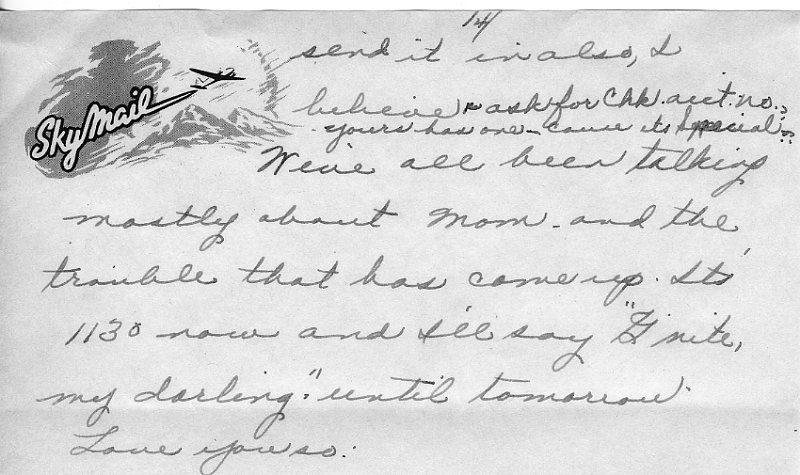 14
Sky Mail
send it in also, I
believe & ask for Chk. acct. no.,
yours has one - cause its special.
We've all been talking
mostly about Mom - and the
trouble that has come up. Its
1130 now and I'll say "G'nite,
my darling." until tomorrow.
Love you so.